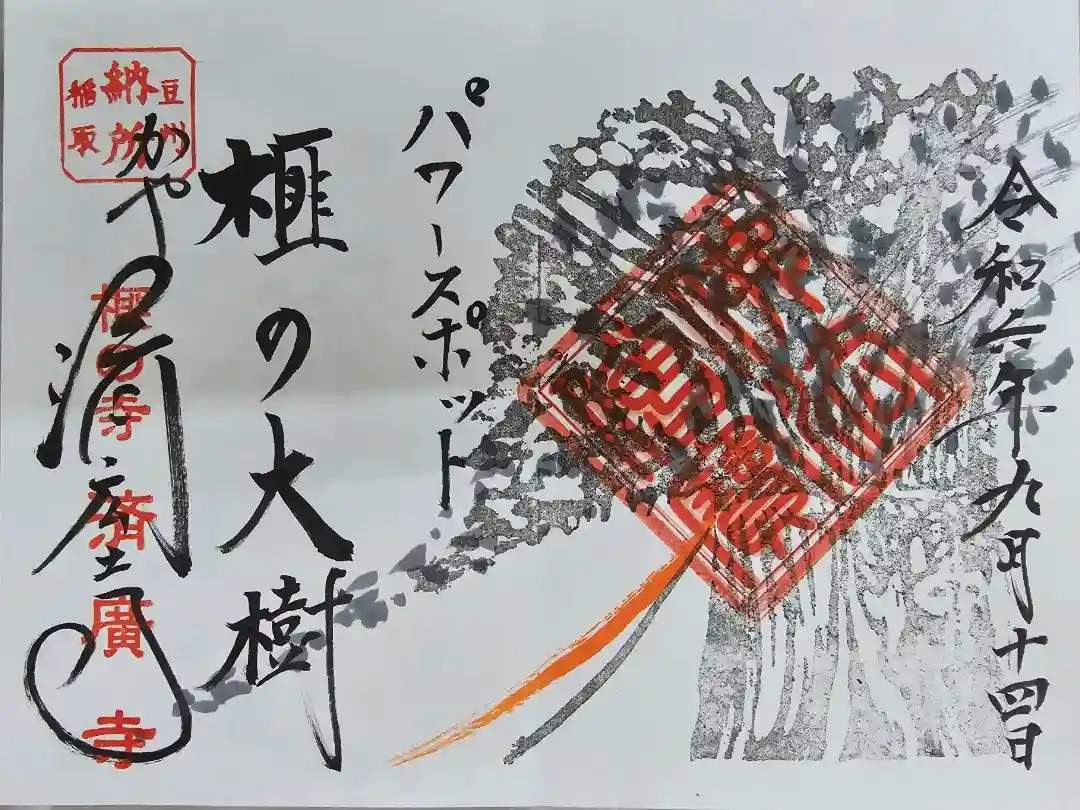 令和六年九月十四日
パワースポット
榧の大樹
豆州
納所
稲取
かや寺
榧の寺 濟廣寺